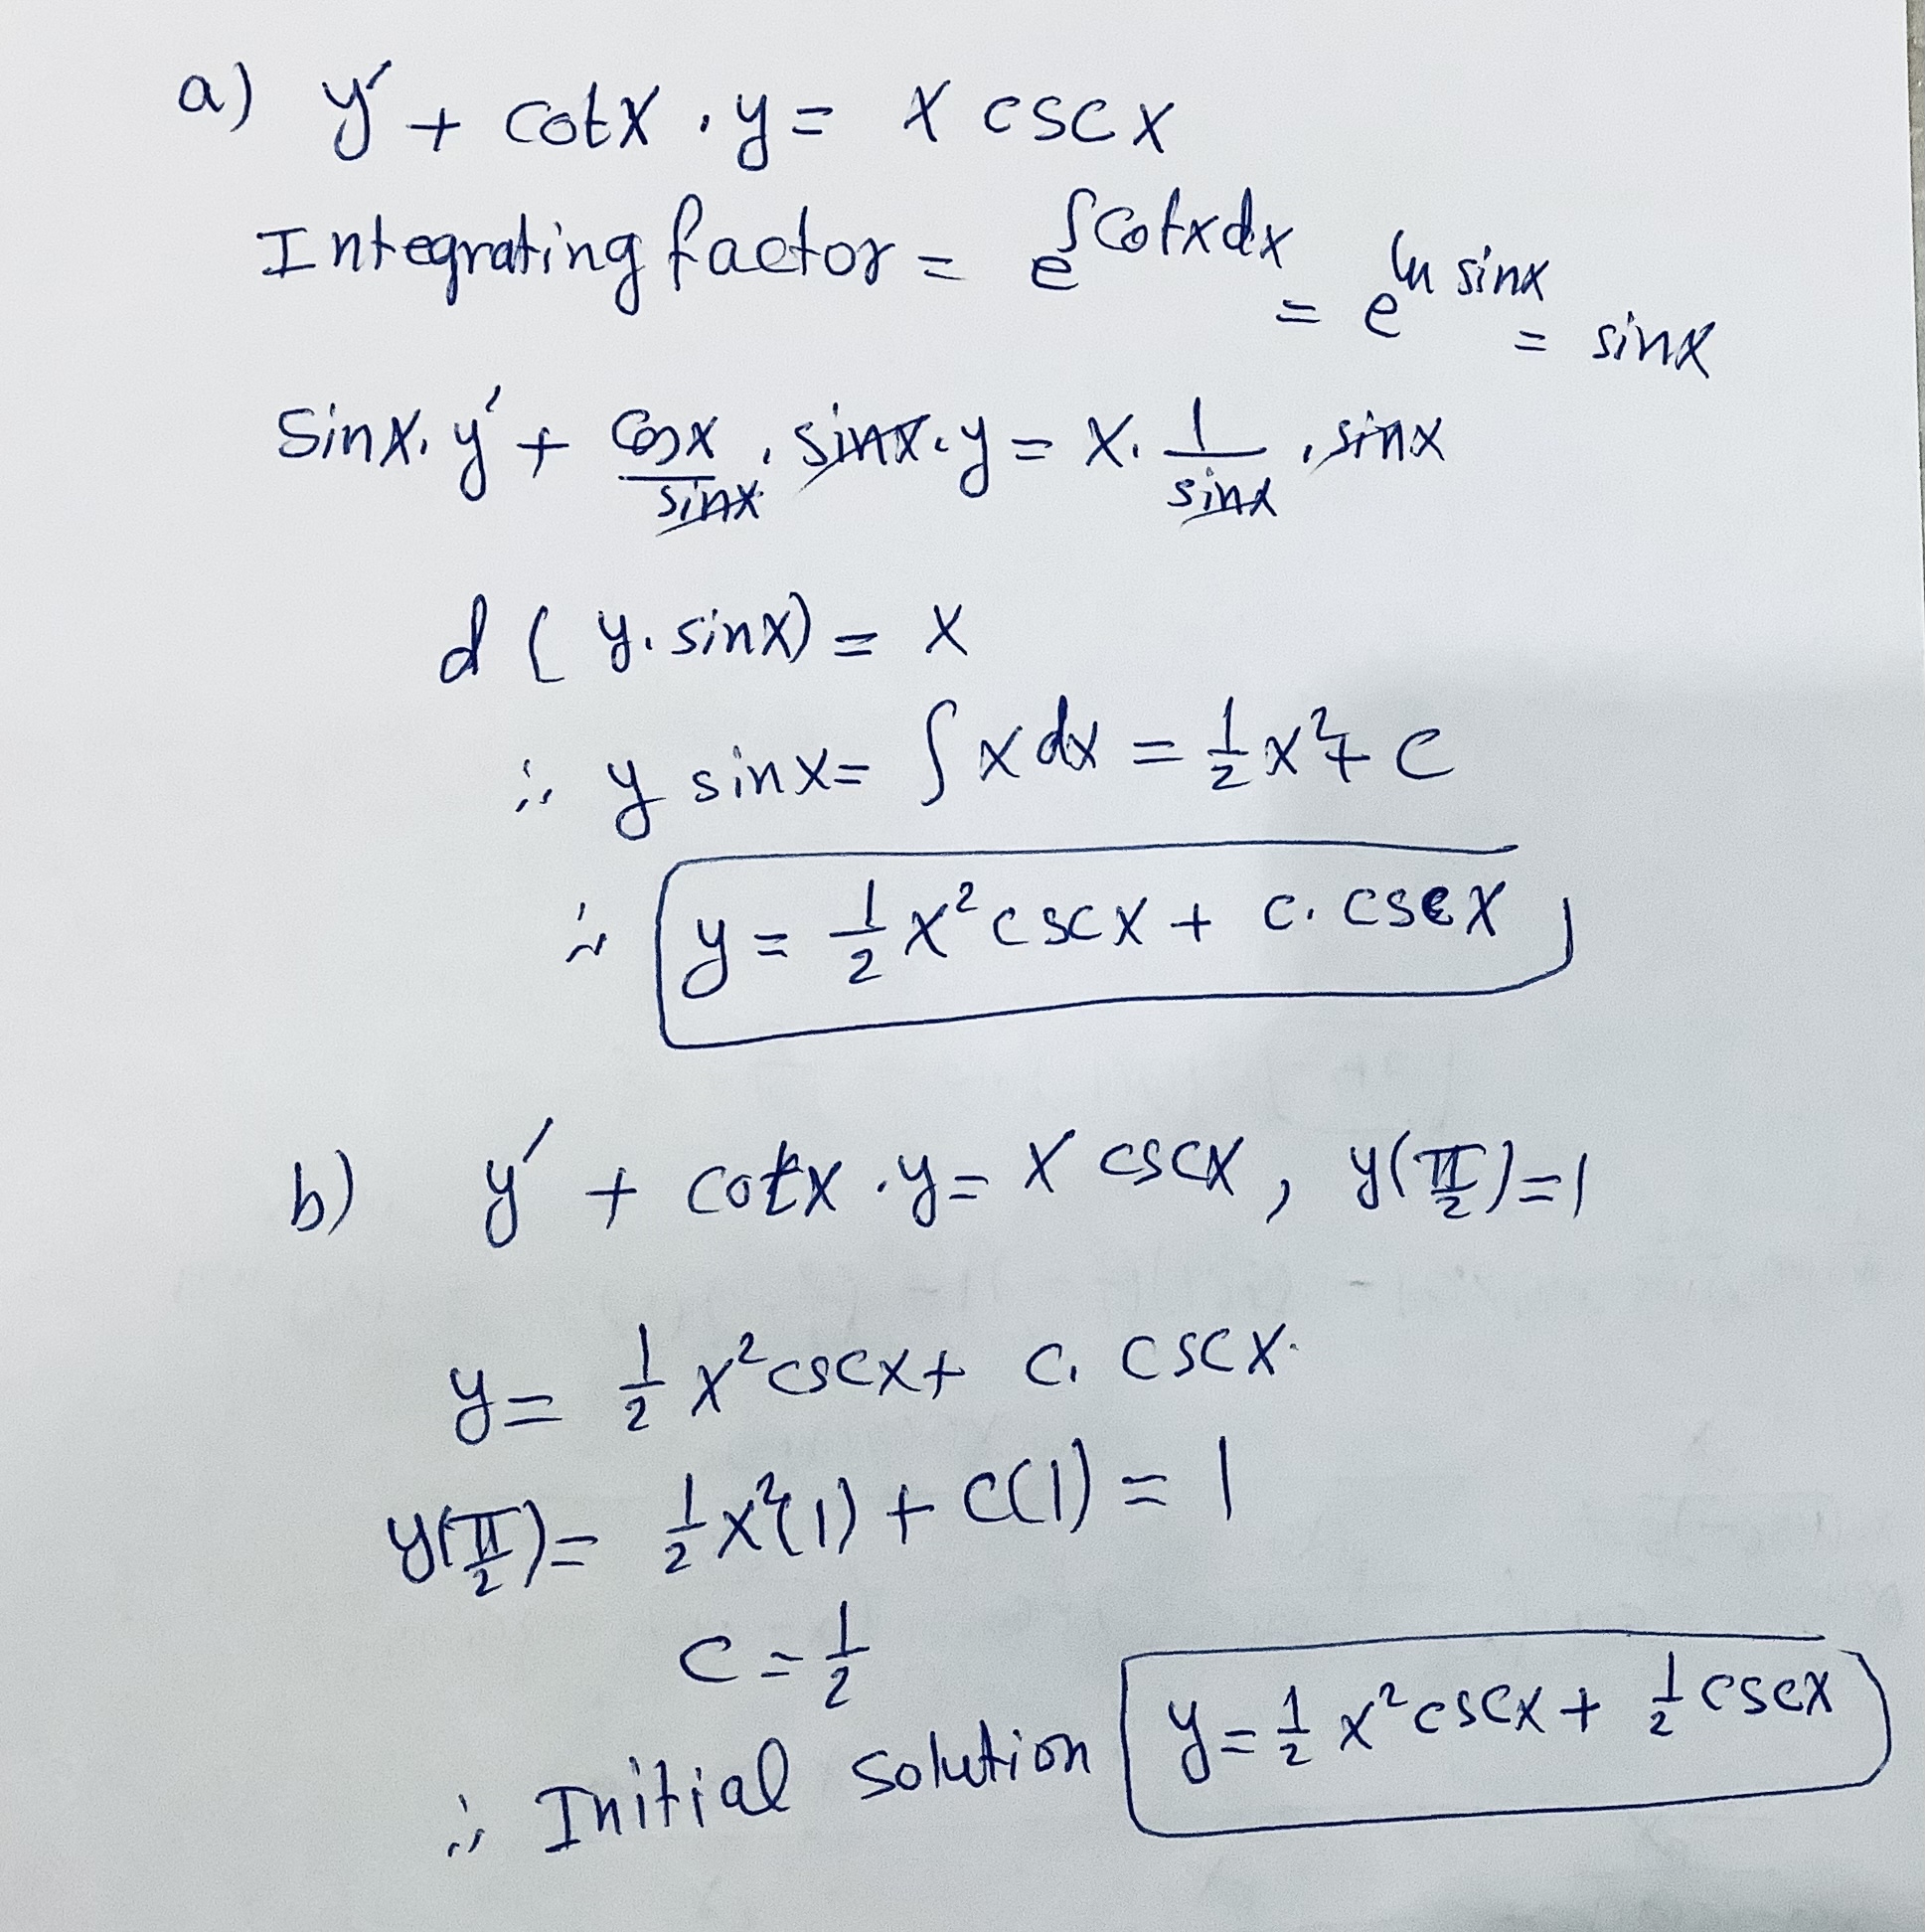 a) y' + cotx . y = x cscx
Integrating factor = e^∫cotxdx = e^ln sinx = sinx
Sinx. y' + cosx/sinx . sinx . y = x. 1/sinx . sinx
d ( y. sinx) = x
∴ y sinx = ∫ x dx = 1/2 x² + c
∴ y = 1/2 x² cscx + c. cscx
b) y' + cotx . y = x cscx, y(π/2)=1
y = 1/2 x² cscx + c. cscx.
y(π/2) = 1/2 x²(1) + c(1) = 1
c = 1/2
∴ Initial solution y = 1/2 x² cscx + 1/2 cscx